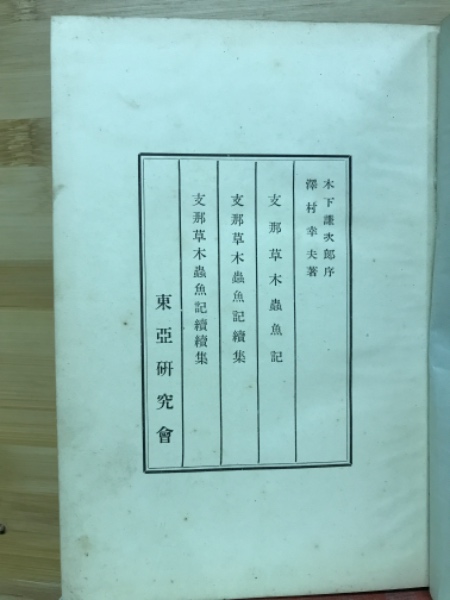 木下謙次郎序
澤村幸夫著
支那草木蟲魚記
支那草木蟲魚記續集
支那草木蟲魚記續續集
東亞硏究會